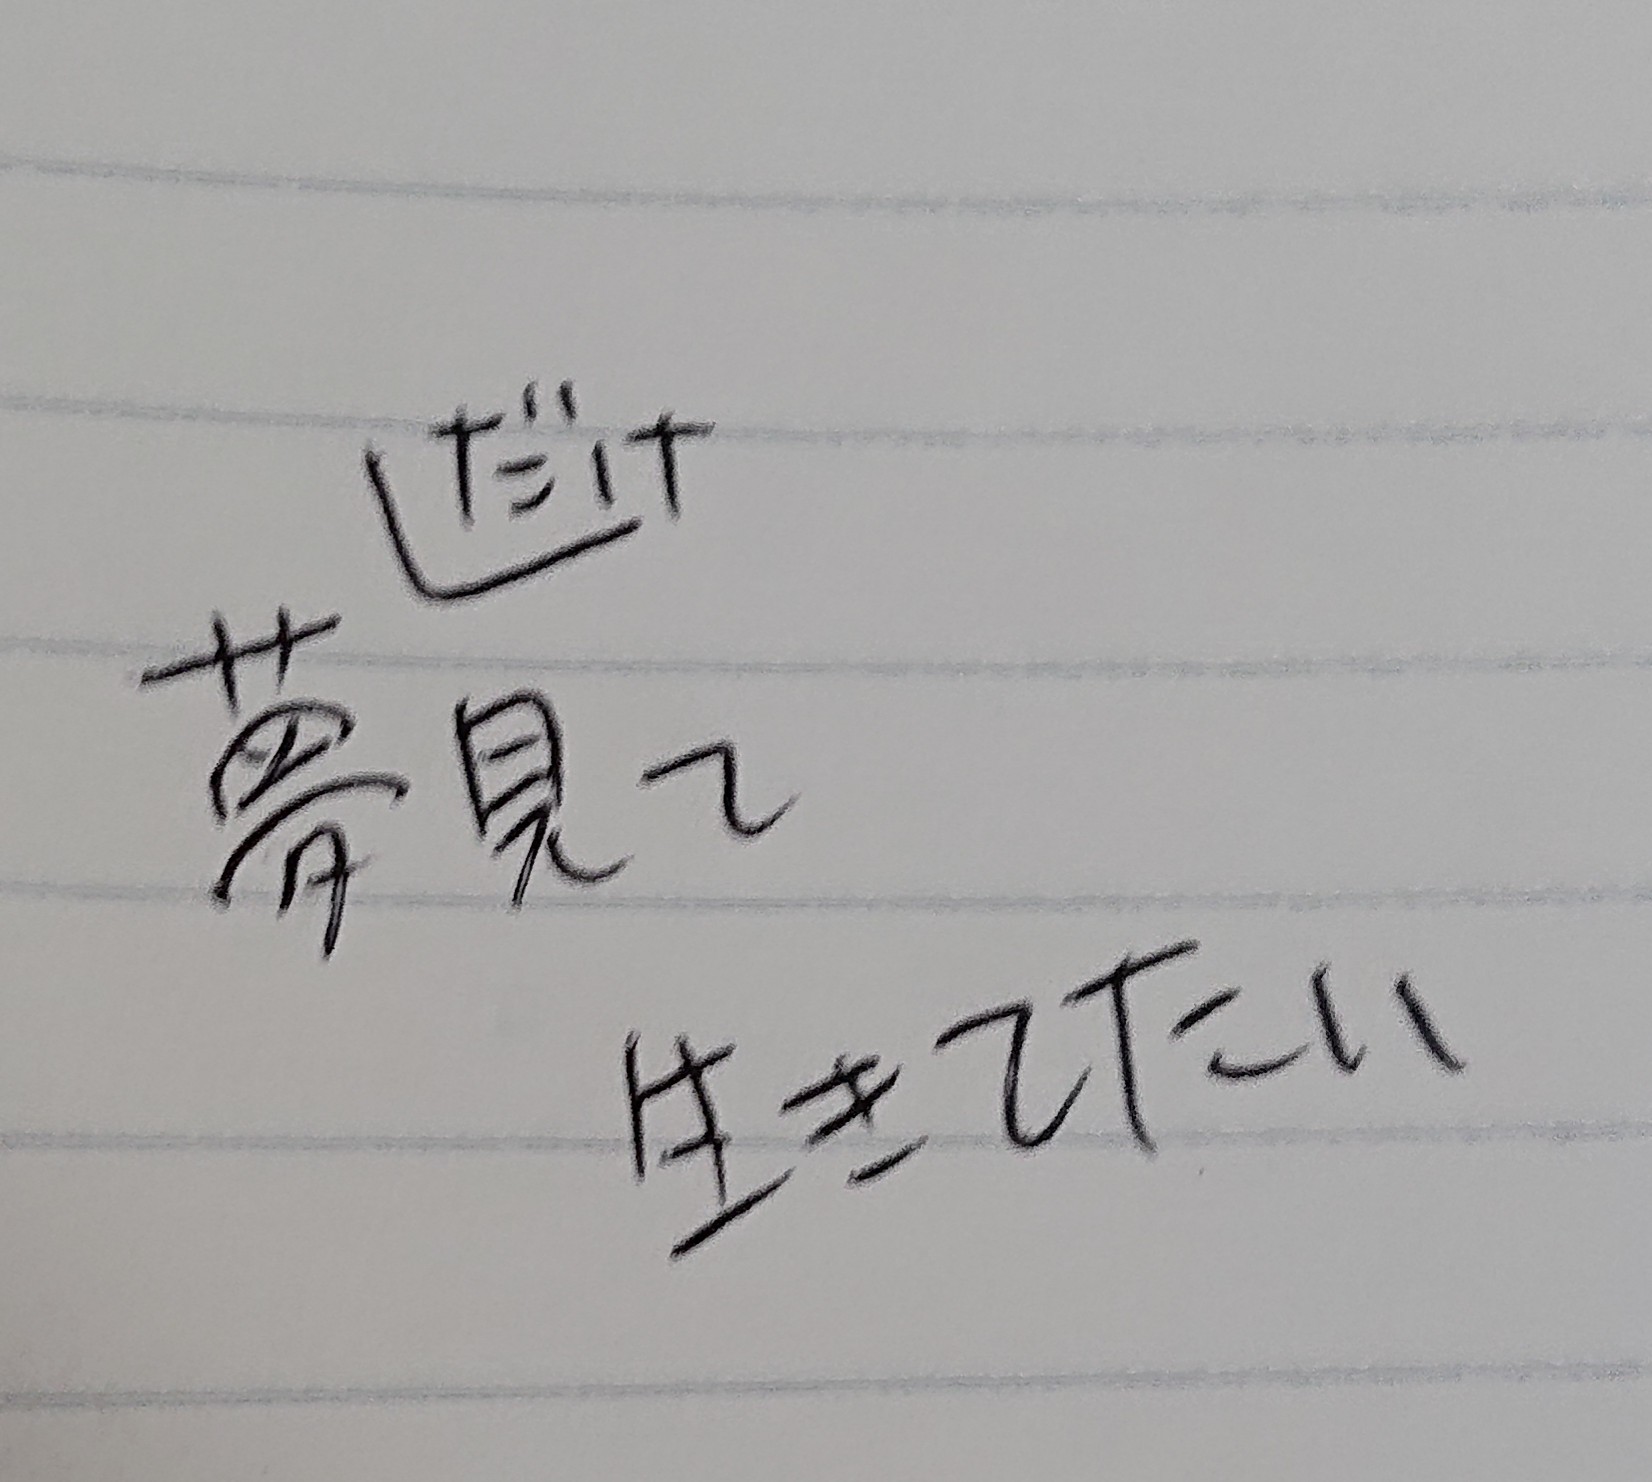 だけ
夢見て
生きてたい